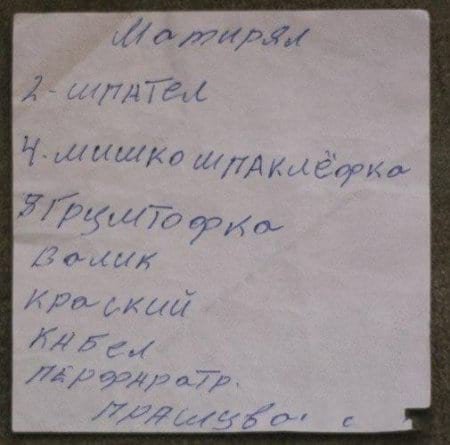 Матирял
2-шпател
4. мишко шпаклёфка
8 Грумтофка
Валик
Краский
Кабел
перфаратр.
прашцва. с